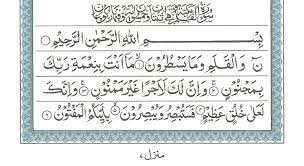 بِسْمِ اللّٰهِ الرَّحْمٰنِ الرَّحِيْمِ
نٓ وَالْقَلَمِ وَمَا يَسْطُرُوْنَ ۙ۱ مَاۤ اَنْتَ بِنِعْمَةِ رَبِّكَ
بِمَجْنُوْنٍ ۚ۲ وَاِنَّ لَكَ لَاَجْرًا غَيْرَ مَمْنُوْنٍ ۚ۳ وَاِنَّكَ
لَعَلٰى خُلُقٍ عَظِيْمٍ ۴ فَسَتُبْصِرُ وَيُبْصِرُوْنَ ۙ۵ بِاَيِّىكُمُ الْمَفْتُوْنُ ۶
منزل ۷